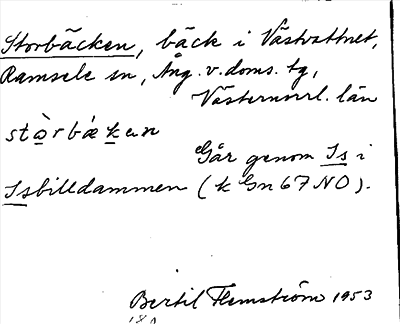 Storbäcken, bäck i Västvattnet,
Ramsele sn, Ång. v. doms. tg,
Västernorrl. län
Går genom Is i
Isbilldammen (k Gn 67 NO).
Bertil Flemström 1953